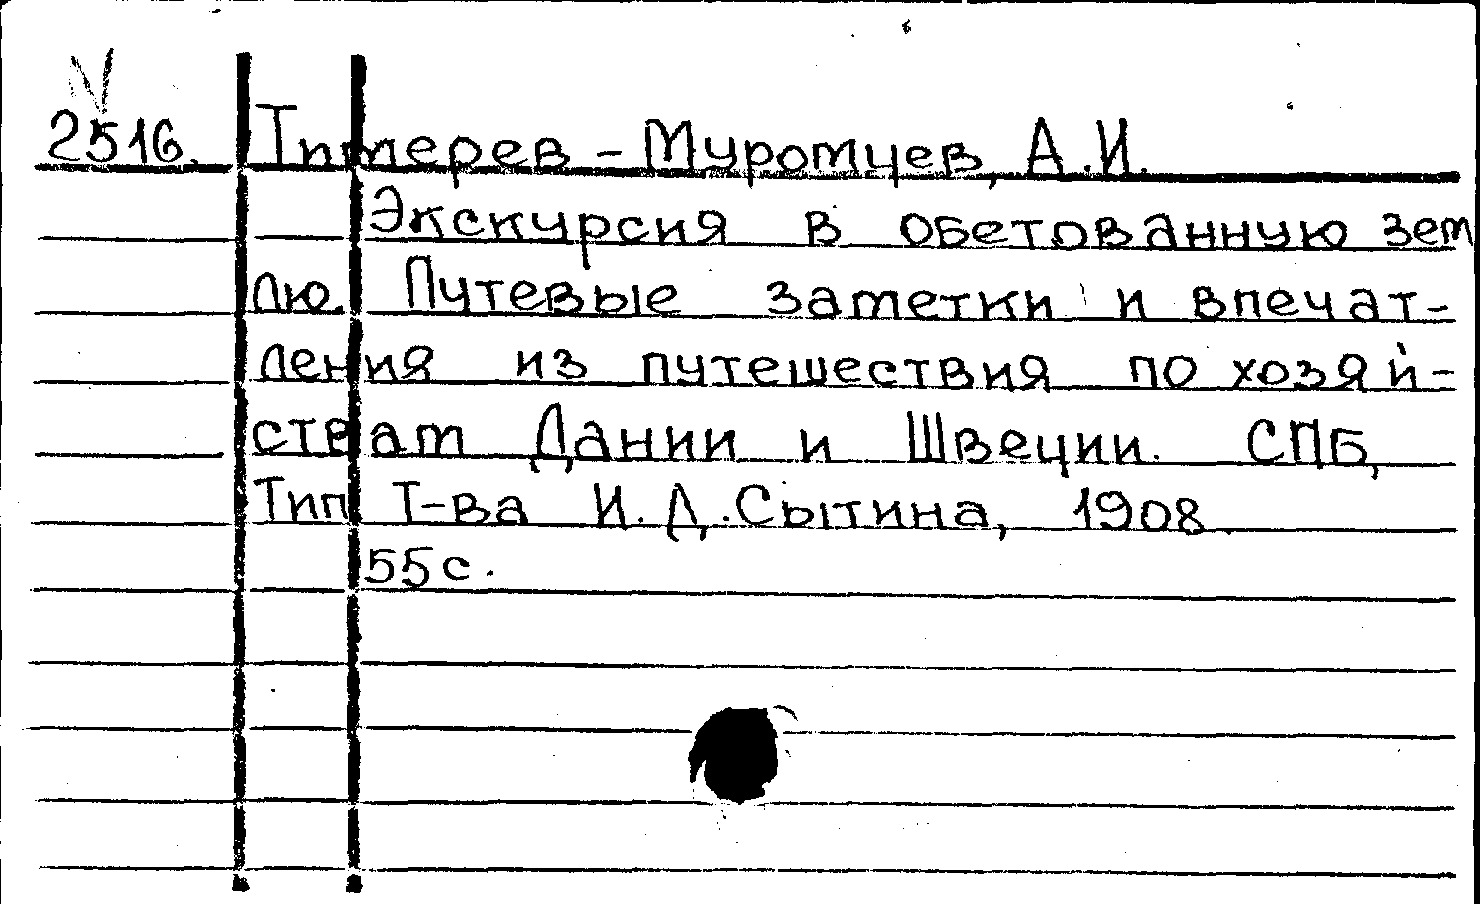 N
2516. Тимерев - Муромцев, А.И.
Экскурсия в обетованную зем
лю. Путевые заметки и впечат-
ления из путешествия по хозяй-
ствам Дании и Швеции. СПБ,
Тип Т-ва И.Д.Сытина, 1908
55с.